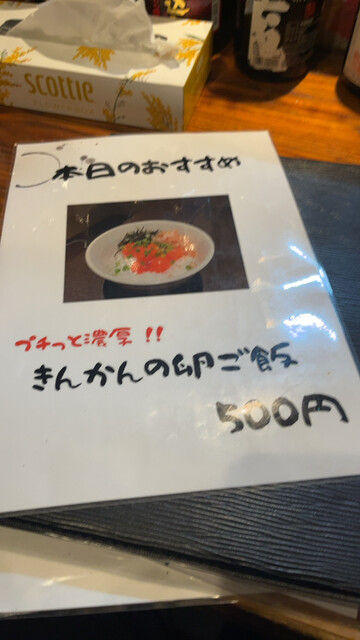 scottie
本日のおすすめ
プチっと濃厚!!
きんかんの卵ご飯
500円